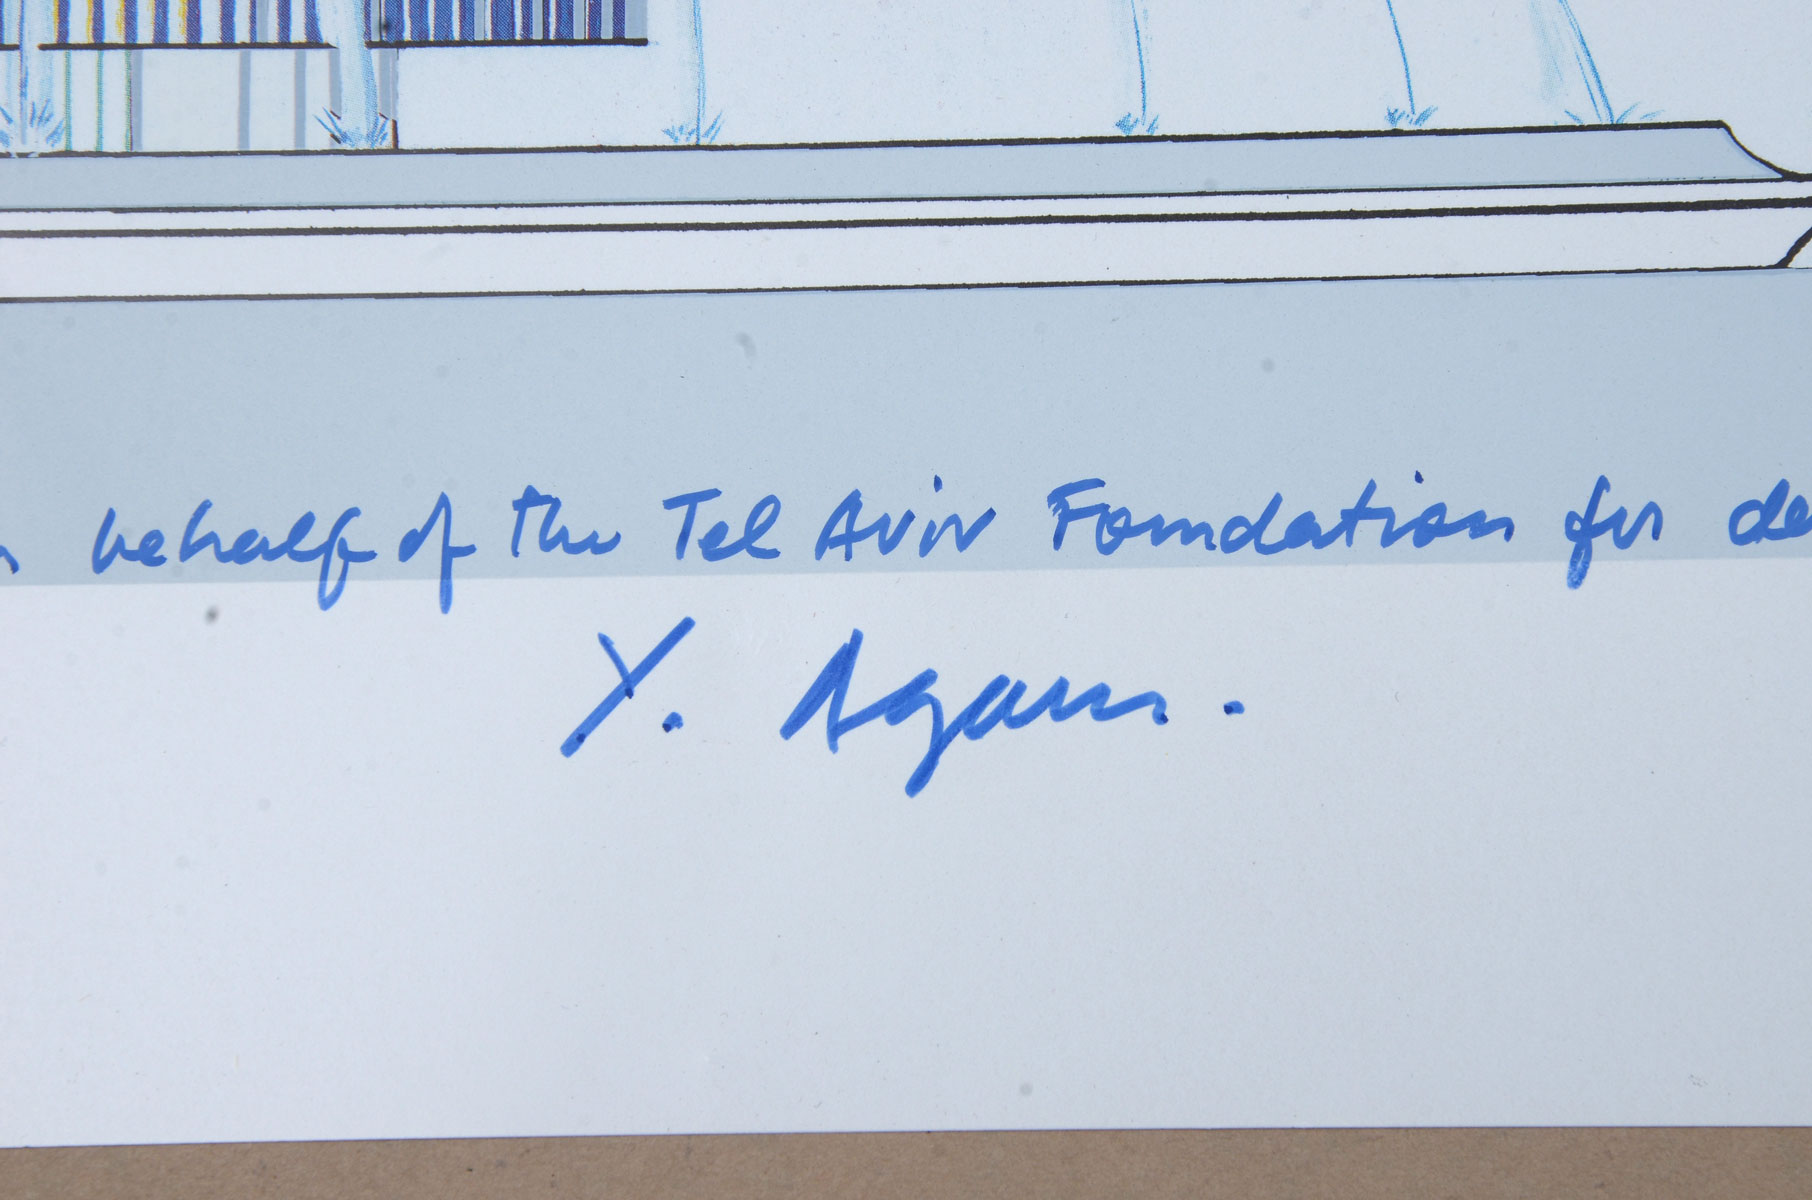 behalf of the Tel Aviv Foundation for de
Y. Agam.